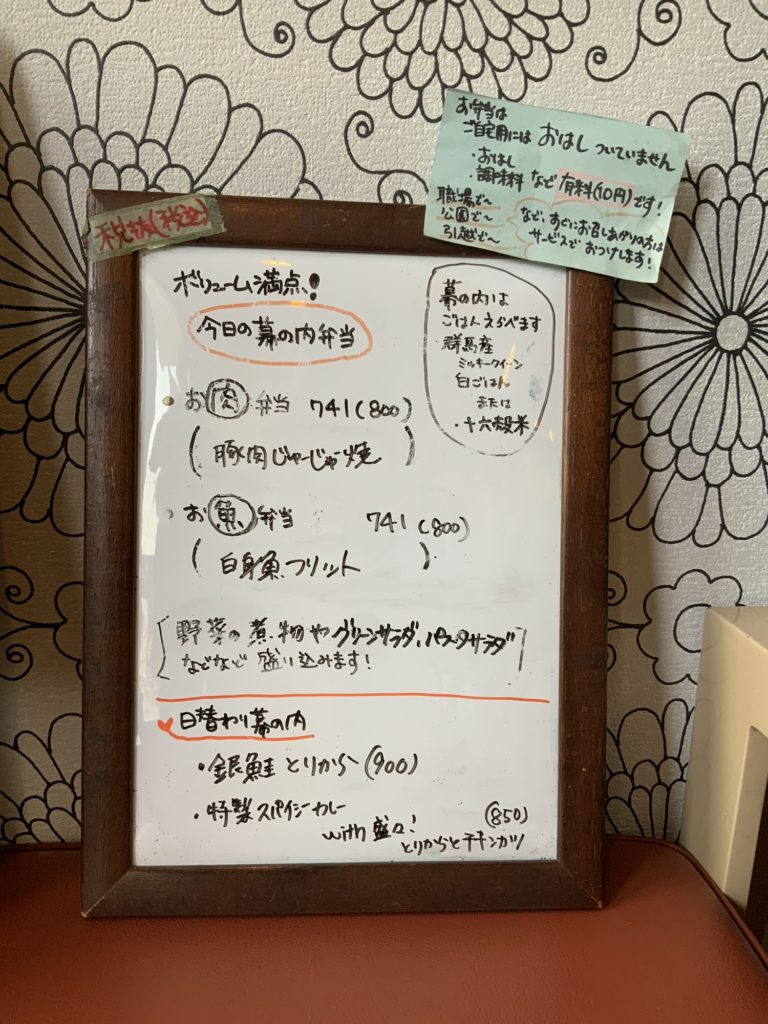 お弁当は
ご自宅用には おはし ついていません
・おはし
・調味料 など 有料(10円)です!
職場で～
公園で～
引越で～
など、すぐにお召しあがりの方は
サービスで おつけします!
税抜(税込)
ボリューム満点、!
今日の幕の内弁当
幕の内は
ごはんえらべます
群馬産
ミルキークイーン
白ごはん
または
・十六穀米
・お肉弁当 741(800)
(豚肉じゅーじゅー焼)
・お魚弁当 741(800)
(白身魚フリット)
[野菜の煮物やグリーンサラダ、パスタサラダ
などなど 盛り込みます!]
♥日替わり幕の内
・銀鮭とりから(900)
・特製スパイシーカレー (850)
with 盛々!
とりからとチキンカツ